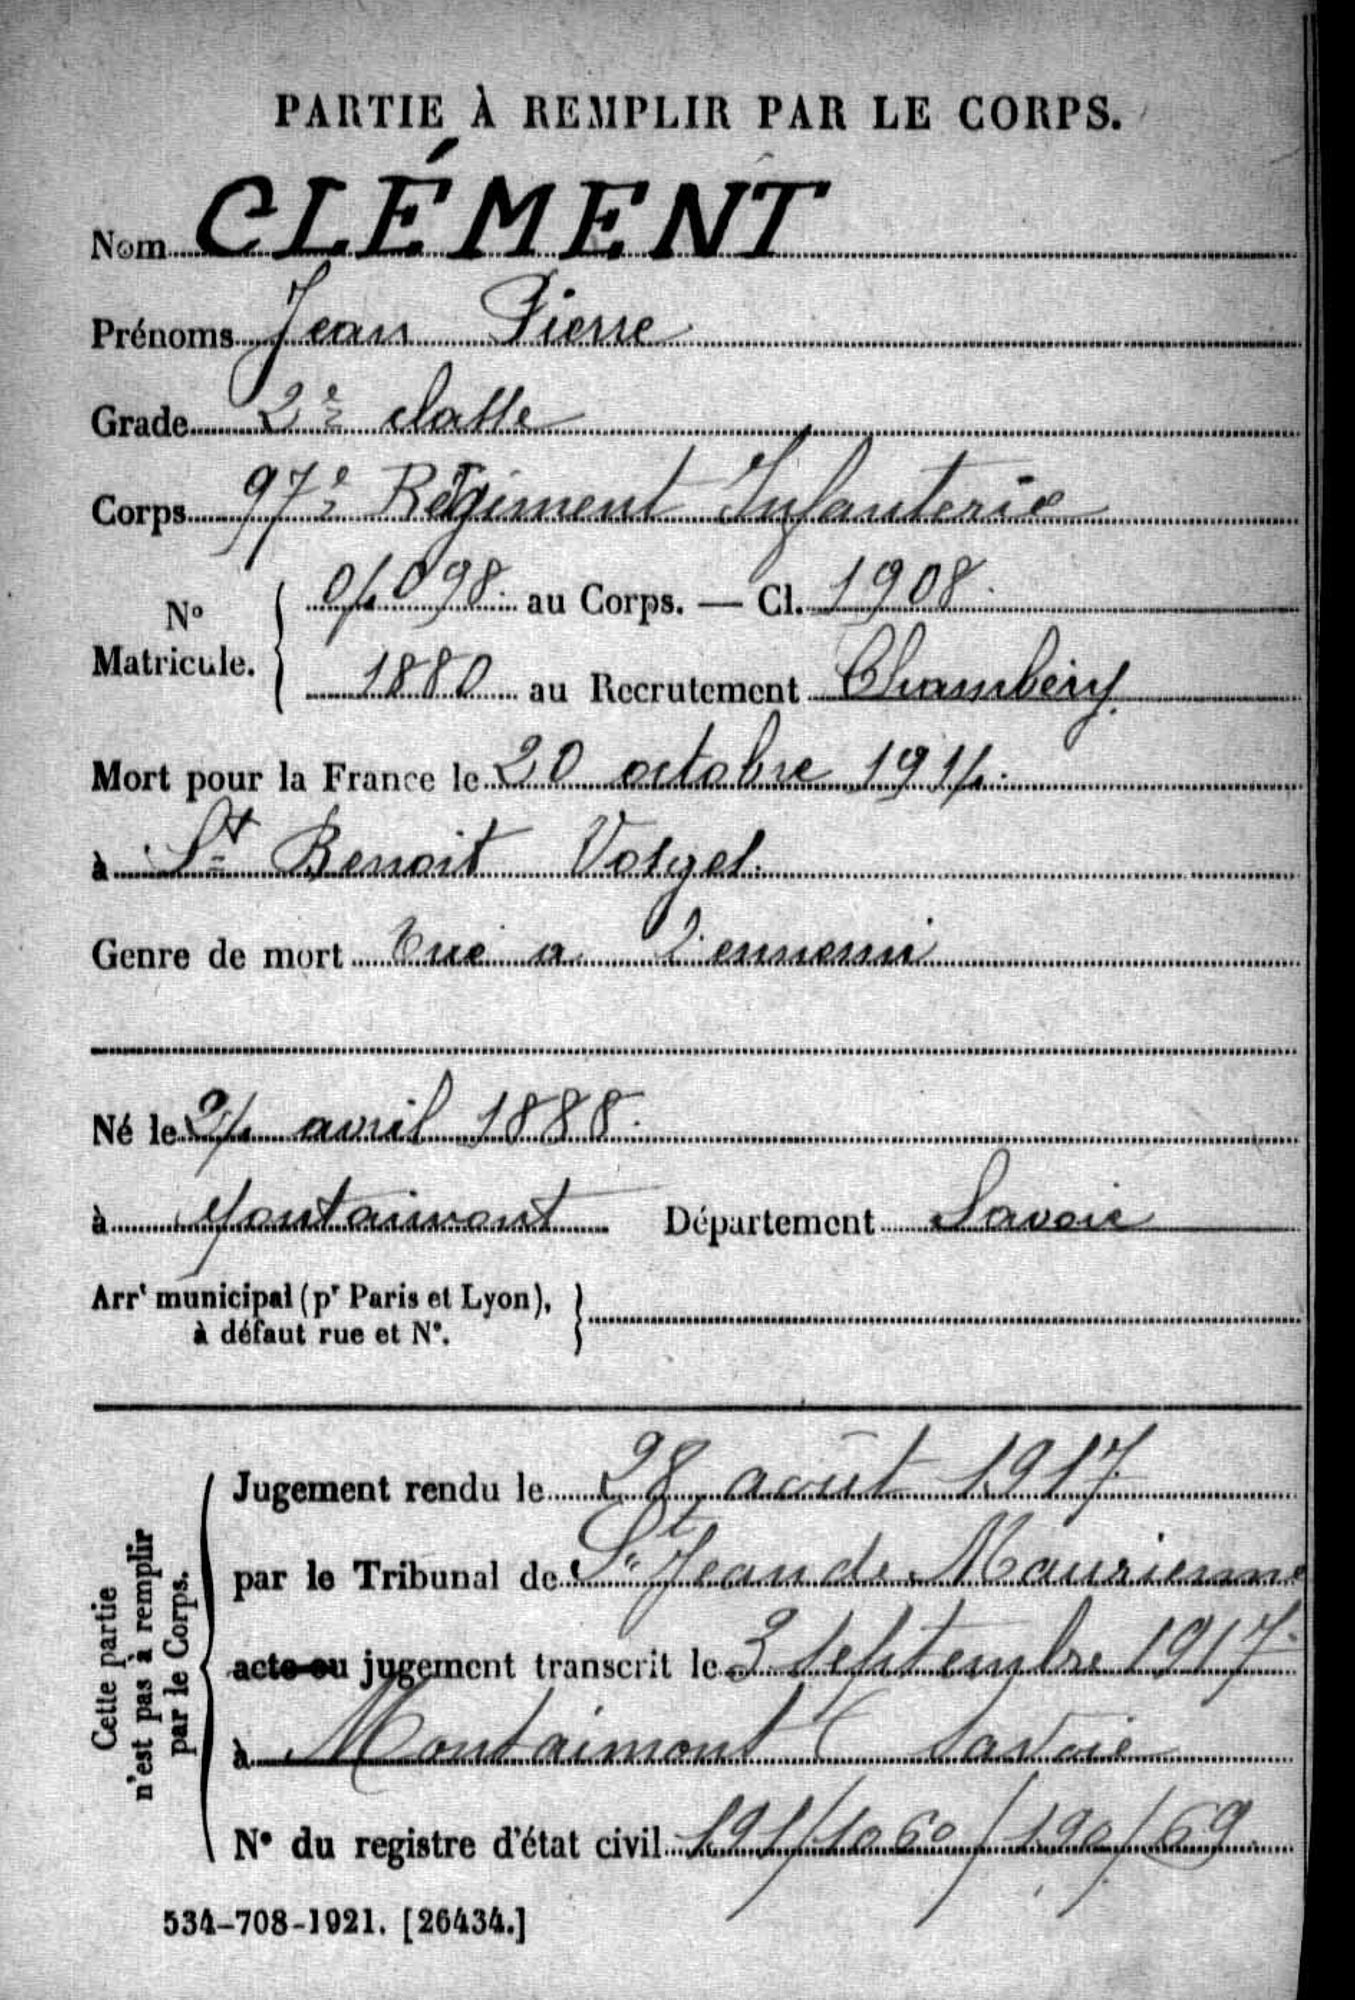 PARTIE À REMPLIR PAR LE CORPS.
Nom CLÉMENT
Prénoms Jean Pierre
Grade 2e classe
Corps 97e Régiment Infanterie
No Matricule. { 04098. au Corps. — Cl. 1908.
1880 au Recrutement Chambéry
Mort pour la France le 20 octobre 1914.
à St Benoit Vosges.
Genre de mort Tué a l'ennemi
Né le 24 avril 1888.
à Montaimont Département Savoie
Arrt municipal (pr Paris et Lyon), }
à défaut rue et No.
Cette partie
n'est pas à remplir
par le Corps.
Jugement rendu le 28 août 1917
par le Tribunal de St Jean de Maurienne
acte ou jugement transcrit le 3 septembre 1917.
à Montaimont ( Savoie
No du registre d'état civil 191/1060/190/69.
534-708-1921. [26434.]